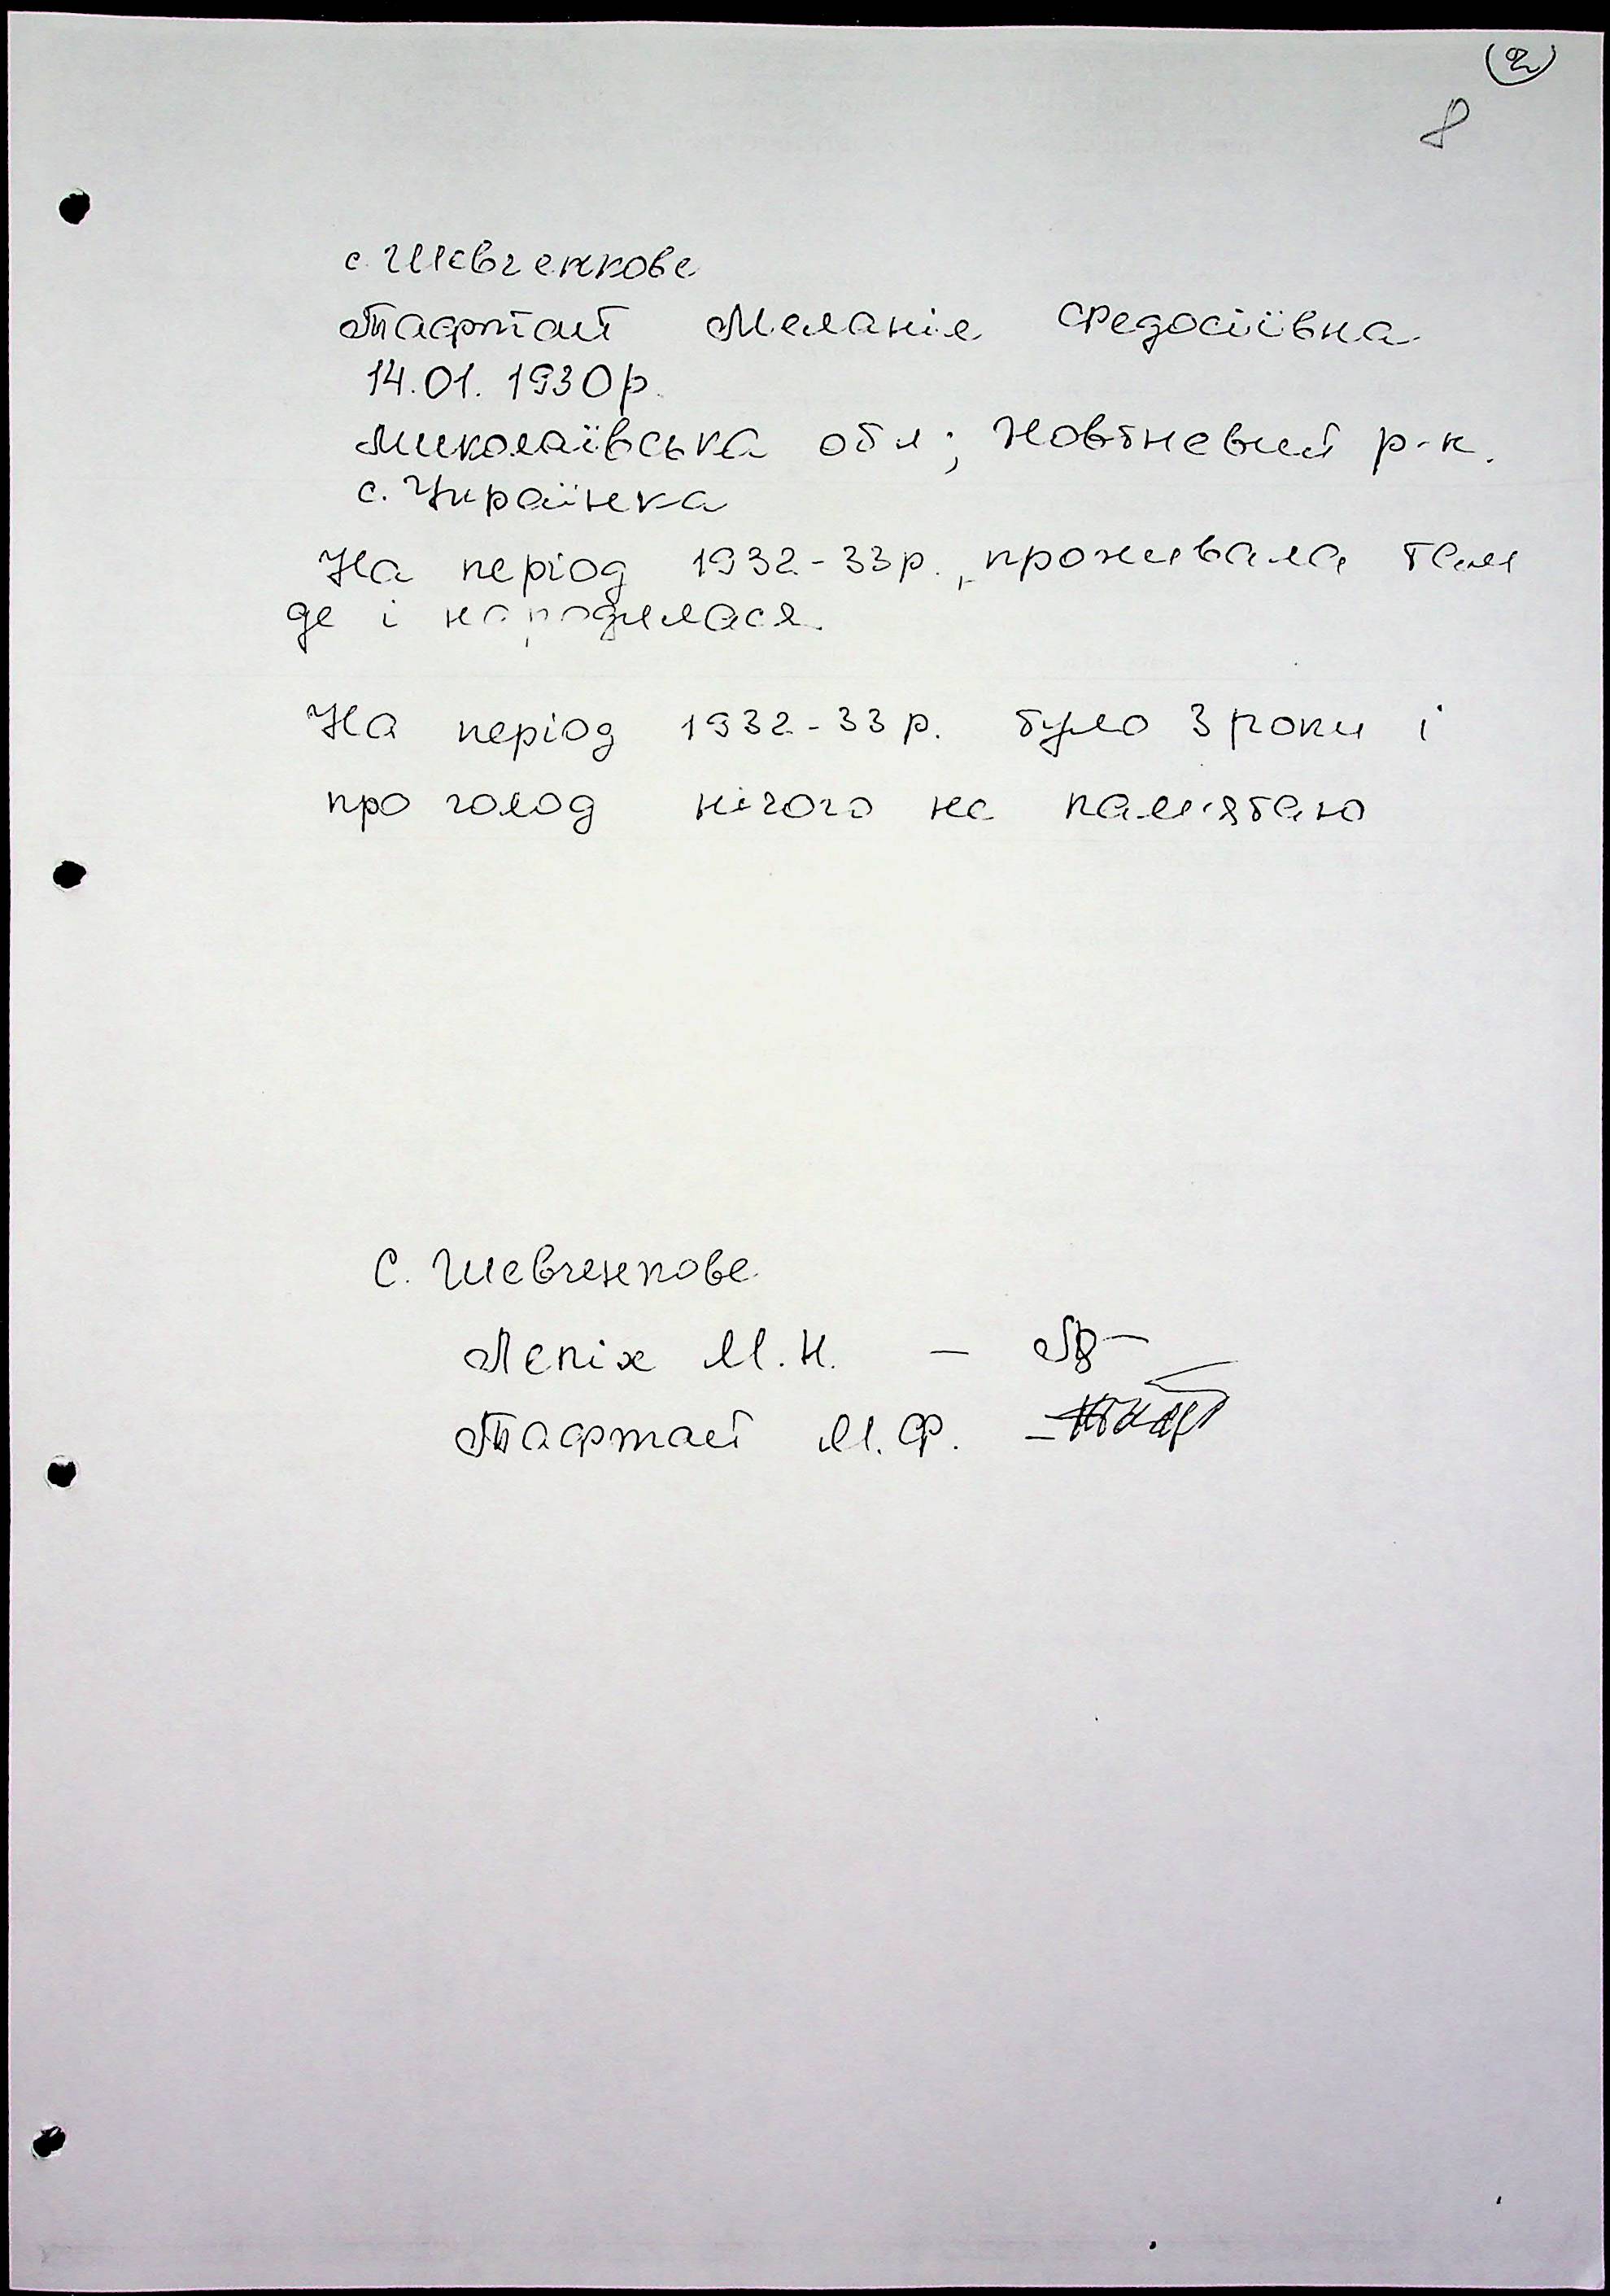 2
8
с. Шевченкове
Тафтай Меланія Федосіївна
14.01.1930р.
Миколаївська обл; Новтневий р-н.
с. Українка
На період 1932-33р., проживала там
де і народилася.
На період 1932-33р. було 3 роки і
про голод нічого не пам'ятаю
С. Шевченкове
Лепіх М.Н. –
Тафтай М.Ф. –